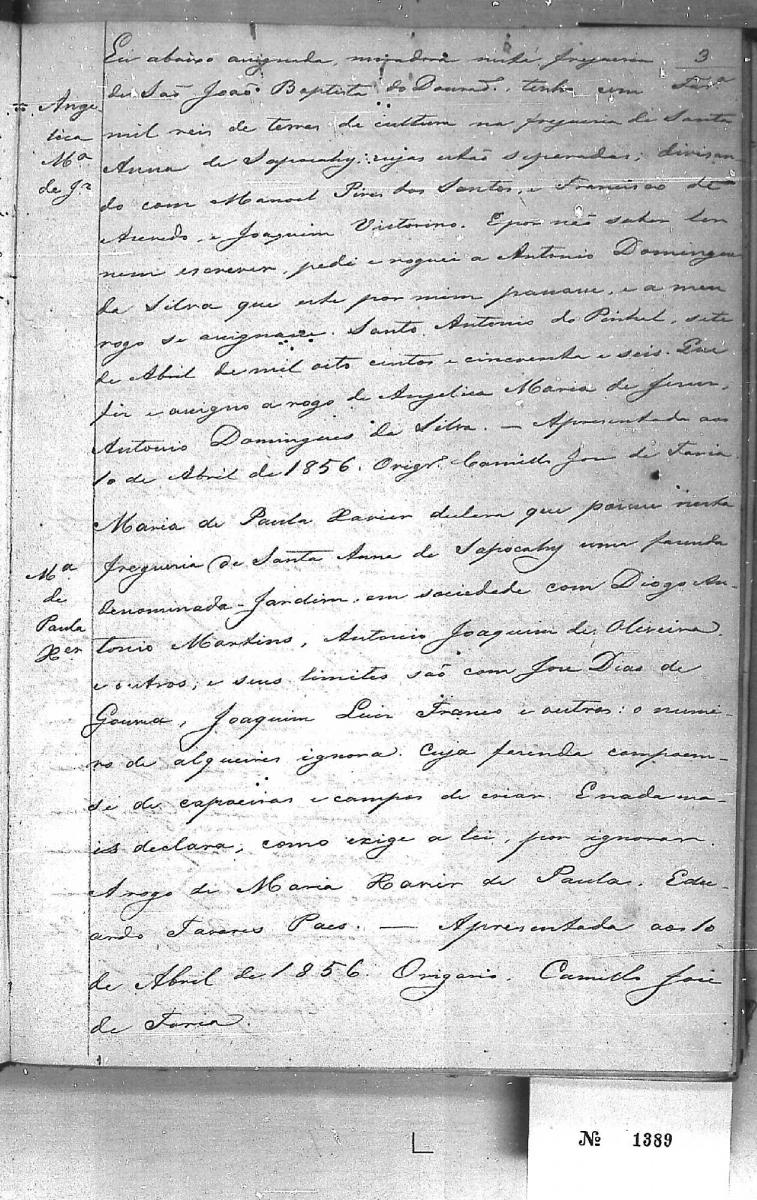 3
Eu abaixo assignada, moradra nesta freguesia
de São João Baptista do Dourad., tenho cem
mil reis de terras de cultura na freguesia de Santa
Anna de Sapocahy; cujas estão seperadas; divisan-
do com Manoel Pires dos Santos, e Francisco de
Asevedo, e Joaquim Victorino. E por não saber ler
nem escrever, pedi e roguei a Antonio Domingues
da Silva que este por mim passasse, e a meu
rogo se assignasse. Santo Antonio do Pinhal, sete
de Abril de mil oito centos e cincoenta e seis. Que
fiz e assigno a rogo de Angelica Maria de Jesus,
Antonio Domingues da Silva. — Apresentada aos
10 de Abril de 1856. Origr. Camillo Jose de Faria.
Ange
lica
Mª
de Jz
Maria de Paula Xavier declara que possue nesta
freguesia de Santa Anna de Sapocahy uma fasenda
denominada - Jardim, em sociedade com Diogo An-
tonio Martins, Antonio Joaquim de Oliveira.
e outros; e seus limites são com Jose Dias de
Gouvea, Joaquim Luis Franco e outros: o nume-
ro de alqueires ignora. Cuja fasenda compoem-
se de capoeiras e campos de criar. E nada ma-
is declara, como exige a lei, por ignorar.
A rogo de Maria Xavier de Paula. Edu-
ardo Tavares Paes. — Apresentada aos 10
de Abril de 1856. Origario. Camillo José
de Faria.
Mª
de
Paula
Xer
Nº 1389